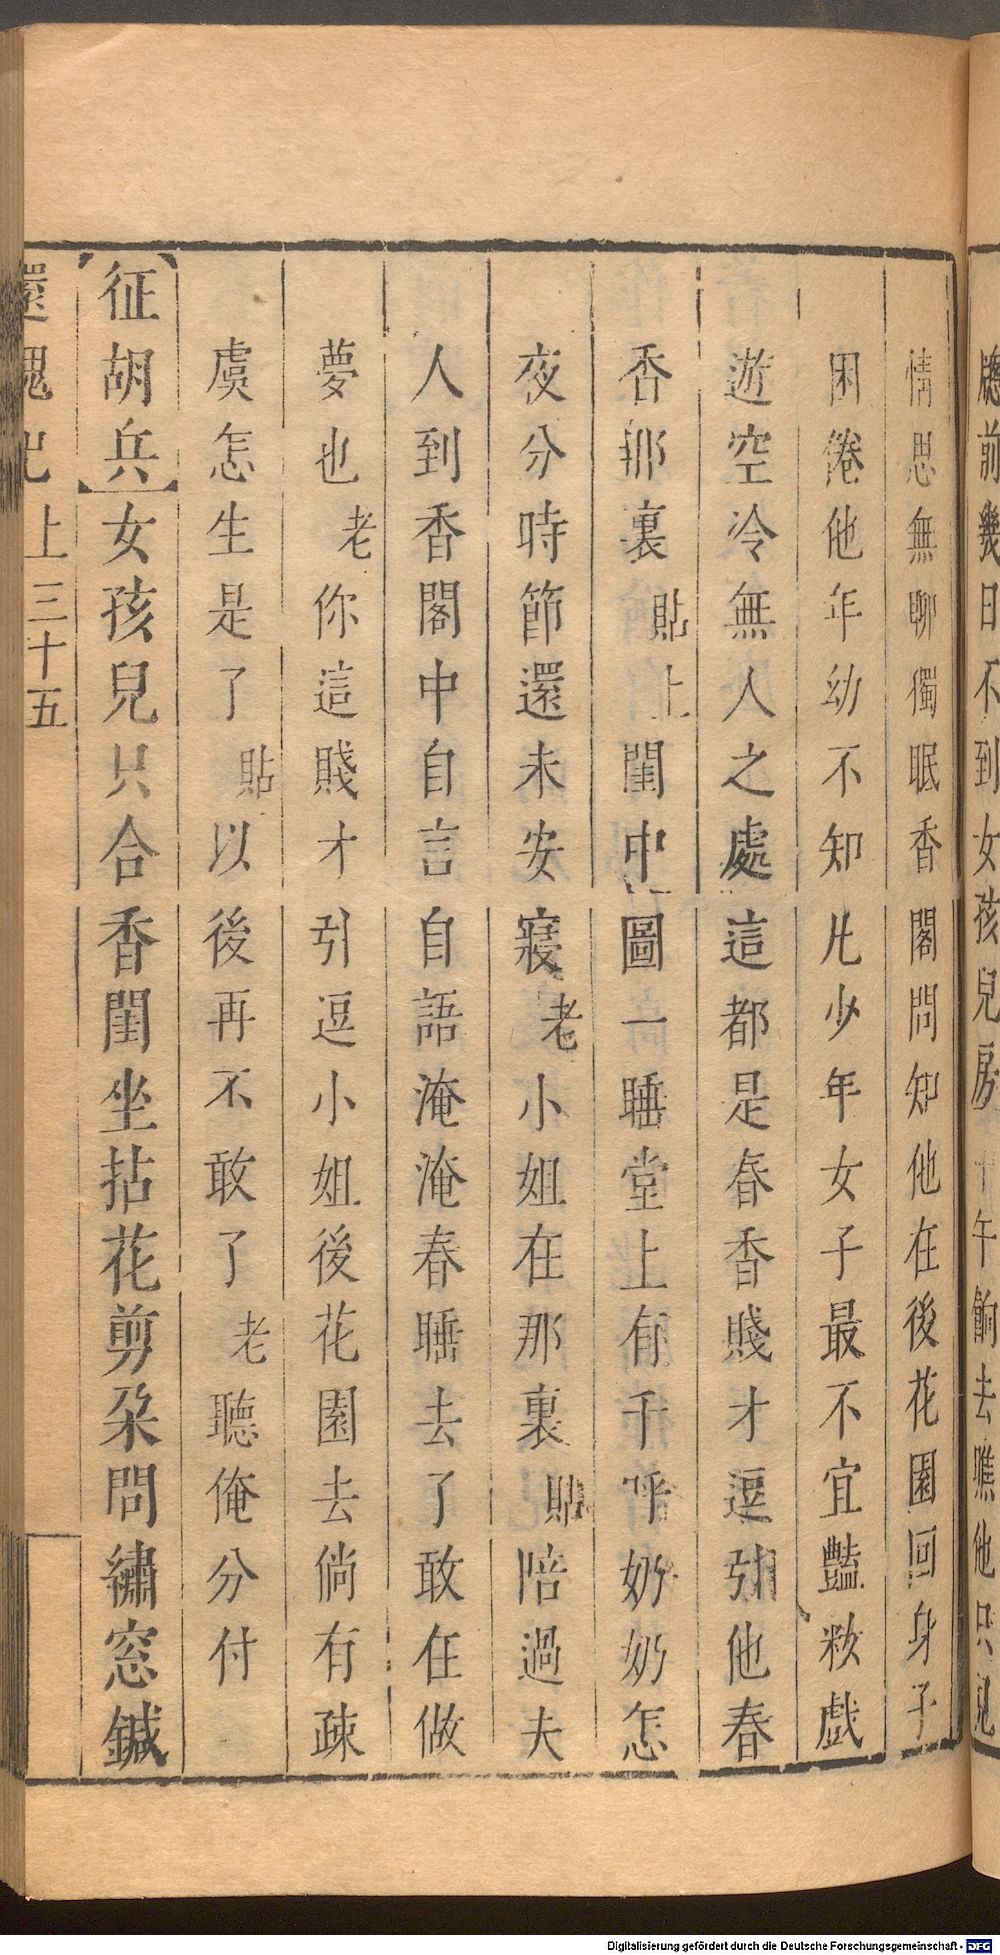 牕前幾日不到女孩兒房中午餉去瞧他只見
情思無聊獨眠香閣問知他在後花園回身子
困倦他年幼不知凡少年女子最不宜豔粧戲
遊空冷無人之處這都是春香賤才逗引他春
香那裏貼上閨中圖一睡堂上有千呼奶奶怎
夜分時節還未安寢老小姐在那裏貼陪過夫
人到香閣中自言自語淹淹春睡去了敢在做
夢也老你這賤才引逗小姐後花園去倘有疎
虞怎生是了貼以後再不敢了老聽俺分付
【征胡兵】女孩兒只合香閨坐拈花剪朶問繡窓鍼
還魂記上三十五
Digitalisierung gefördert durch die Deutsche Forschungsgemeinschaft - DFG